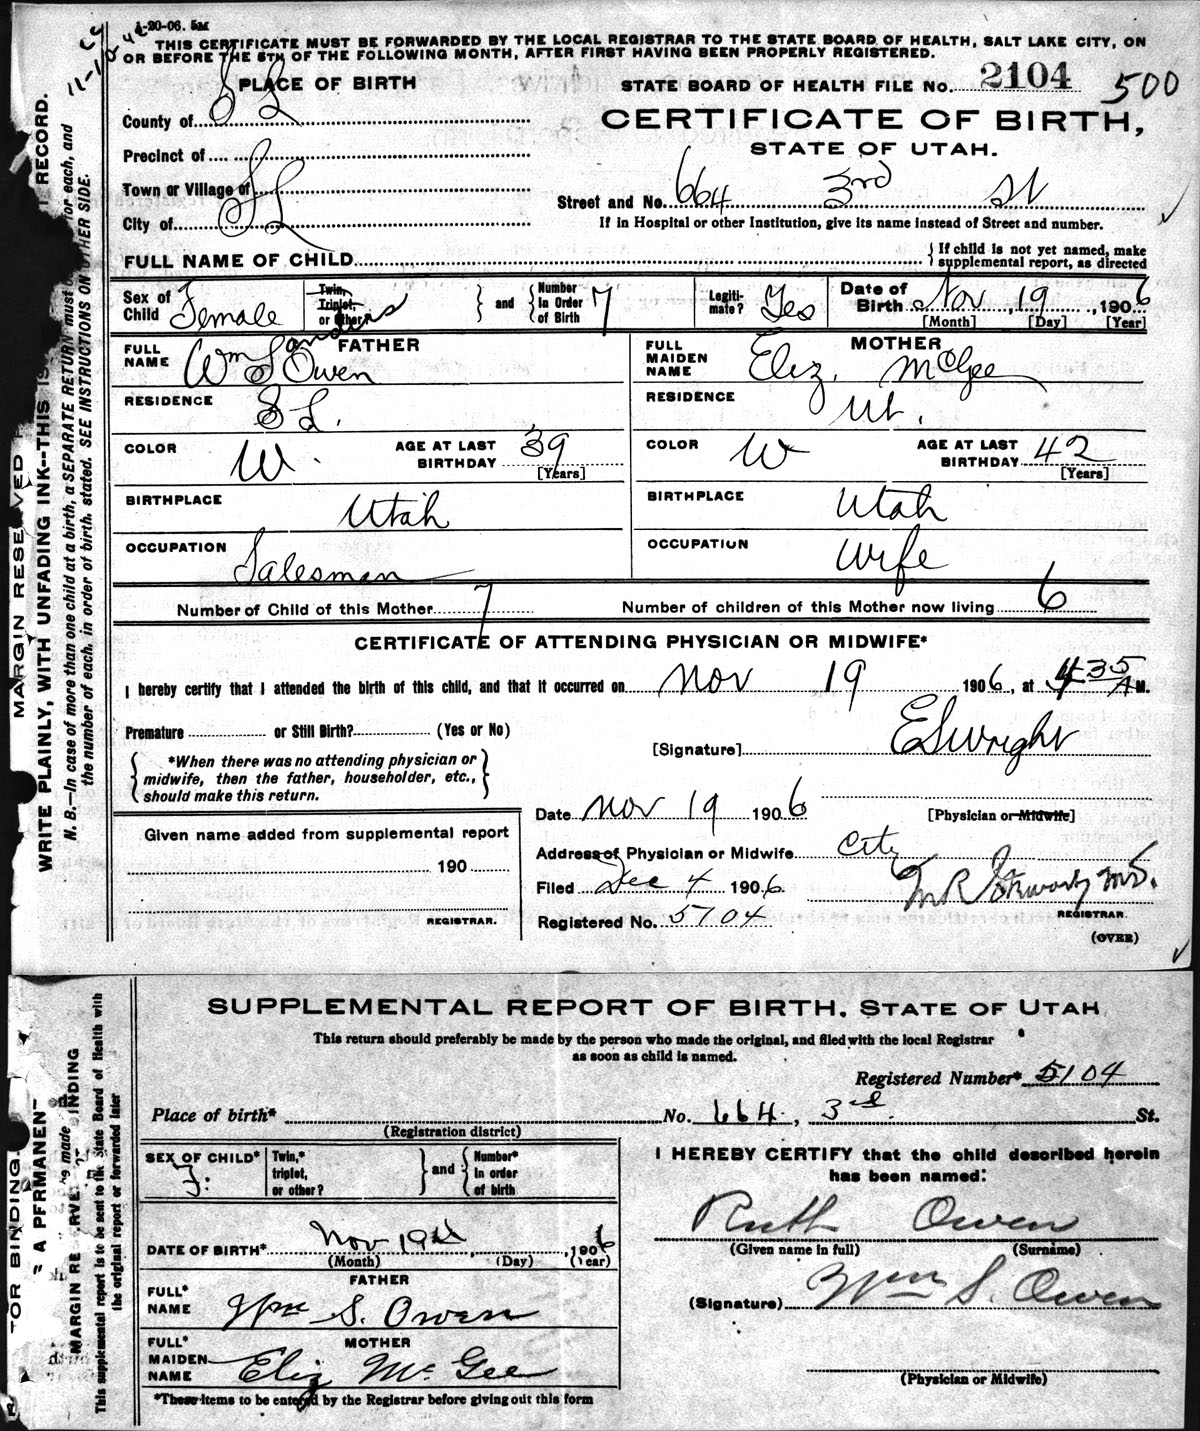 1-20-06. 5M
THIS CERTIFICATE MUST BE FORWARDED BY THE LOCAL REGISTRAR TO THE STATE BOARD OF HEALTH, SALT LAKE CITY, ON
OR BEFORE THE 5TH OF THE FOLLOWING MONTH, AFTER FIRST HAVING BEEN PROPERLY REGISTERED.
PLACE OF BIRTH
STATE BOARD OF HEALTH FILE NO. 2104 500
County of S L
CERTIFICATE OF BIRTH,
STATE OF UTAH.
Precinct of
Town or Village of
Street and No. 664 3rd St
City of S L
If in Hospital or other Institution, give its name instead of Street and number.
FULL NAME OF CHILD
{ If child is not yet named, make
supplemental report, as directed
Sex of Child Female
Twin, Triplet, or Other } and { Number In Order of Birth 7
Legiti-mate? Yes
Date of Birth Nov, 19, 1906
[Month] [Day] [Year]
FATHER
FULL NAME Wm Sanders Owen
MOTHER
FULL MAIDEN NAME Eliz. McGee
RESIDENCE S L.
RESIDENCE Ut.
COLOR W. AGE AT LAST BIRTHDAY 39 [Years]
COLOR W AGE AT LAST BIRTHDAY 42 [Years]
BIRTHPLACE Utah
BIRTHPLACE Utah
OCCUPATION Salesman
OCCUPATION Wife
Number of Child of this Mother 7 Number of children of this Mother now living 6
CERTIFICATE OF ATTENDING PHYSICIAN OR MIDWIFE*
I hereby certify that I attended the birth of this child, and that it occurred on Nov 19 1906, at 4 35 A M.
Premature or Still Birth? (Yes or No)
[Signature] E S Wright
{ *When there was no attending physician or
midwife, then the father, householder, etc.,
should make this return. }
Date Nov 19 1906 [Physician or Midwife]
Given name added from supplemental report
190
REGISTRAR.
Address of Physician or Midwife City
Filed Dec 4 1906
Registered No. 5104
REGISTRAR.
(OVER)
MARGIN RESERVED
WRITE PLAINLY, WITH UNFADING INK--THIS IS RECORD.
N. B.—In case of more than one child at a birth, a SEPARATE RETURN must for each, and
the number of each, in order of birth, stated. SEE INSTRUCTIONS ON OTHER SIDE.
SUPPLEMENTAL REPORT OF BIRTH, STATE OF UTAH
This return should preferably be made by the person who made the original, and filed with the local Registrar
as soon as child is named.
Registered Number* 5104
Place of birth* No. 664, 3rd. St.
(Registration district)
SEX OF CHILD* F.
Twin,* triplet, or other? } and { Number* in order of birth
I HEREBY CERTIFY that the child described herein
has been named:
Ruth Owen
(Given name in full) (Surname)
DATE OF BIRTH* Nov 19th, 1906
(Month) (Day) (Year)
FATHER
FULL* NAME Wm S. Owen
(Signature) Wm S. Owen
MOTHER
FULL* MAIDEN NAME Eliz Mc Gee
(Physician or Midwife)
*These items to be entered by the Registrar before giving out this form
FOR BINDING.
This supplemental report is to be sent to the State Board of Health with
the original report or forwarded later